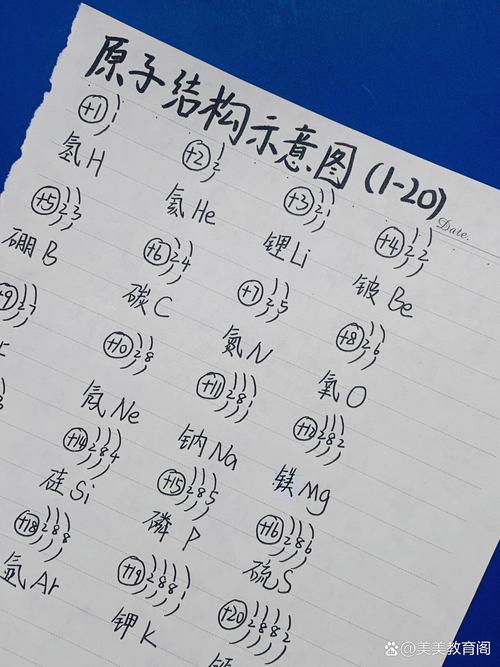 原子结构示意图(1-20)
Date.
+1 1
氢H
+2 2
氦He
+3 2 1
锂Li
+4 2 2
铍Be
+5 2 3
硼B
+6 2 4
碳C
+7 2 5
氮N
+8 2 6
氧O
+9 2 7
+10 2 8
氖Ne
+11 2 8 1
钠Na
+12 2 8 2
镁Mg
+14 2 8 4
硅Si
+15 2 8 5
磷P
+16 2 8 6
硫S
+18 2 8 8
氩Ar
+19 2 8 8 1
钾K
+20 2 8 8 2
@美美教育阁